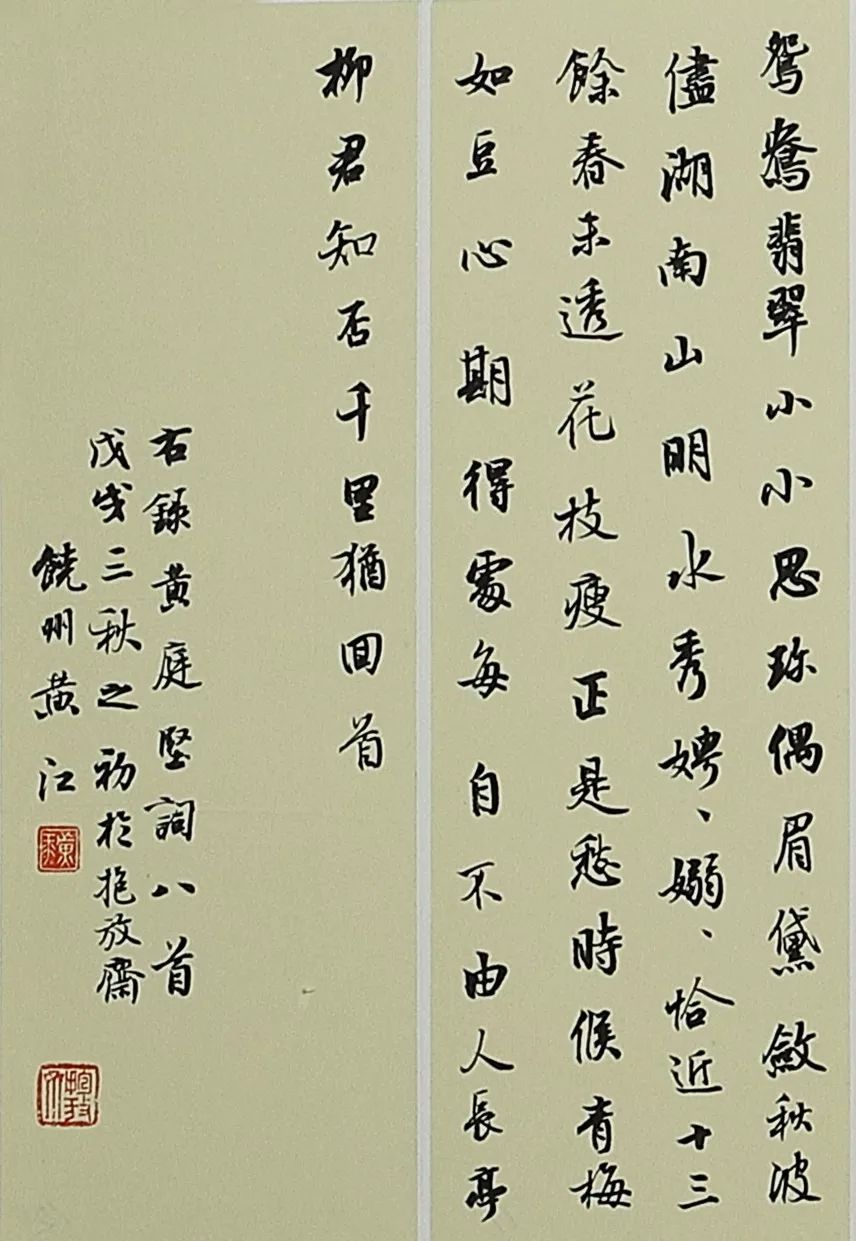 鴛鴦翡翠小小思珍偶眉黛斂秋波
儘湖南山明水秀娉、嫋、恰近十三
餘春未透花枝瘦正是愁時候青梅
如豆心期得處每自不由人長亭
柳君知否千里猶回首
右錄黃庭堅詞八首
戊戌三秋之初於抱放齋
饒州黃江